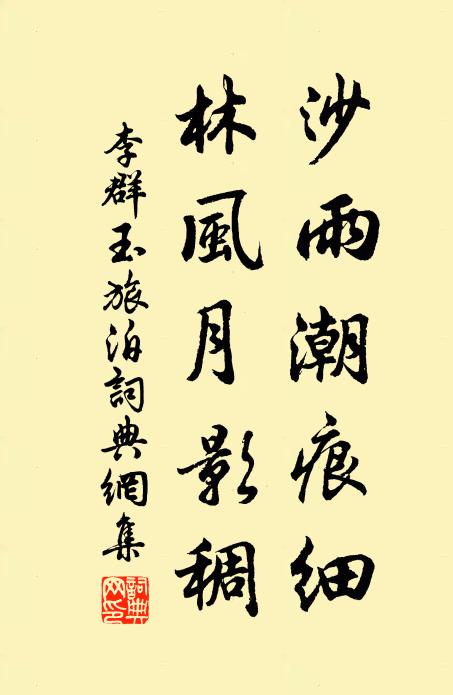 沙雨潮痕細
林風月影稠
李群玉旅泊詞典網集
詞典網印